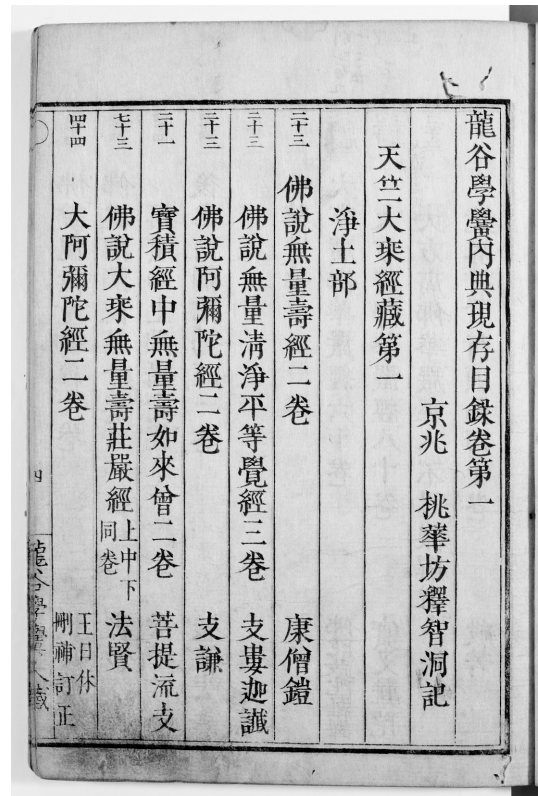 龍谷學黌內典現存目録卷第一
京兆 桃華坊釋智洞記
天竺大乘經藏第一
淨土部
二十三 佛說無量壽經二卷 康僧鎧
二十三 佛說無量清淨平等覺經三卷 支婁迦讖
二十三 佛說阿彌陀經二卷 支謙
二十一 寶積經中無量壽如來會二卷 菩提流支
七十三 佛說大乘無量壽莊嚴經上中下同卷 法賢
四十四 大阿彌陀經二卷 王日休刪補訂正
四
龍谷學黌大藏